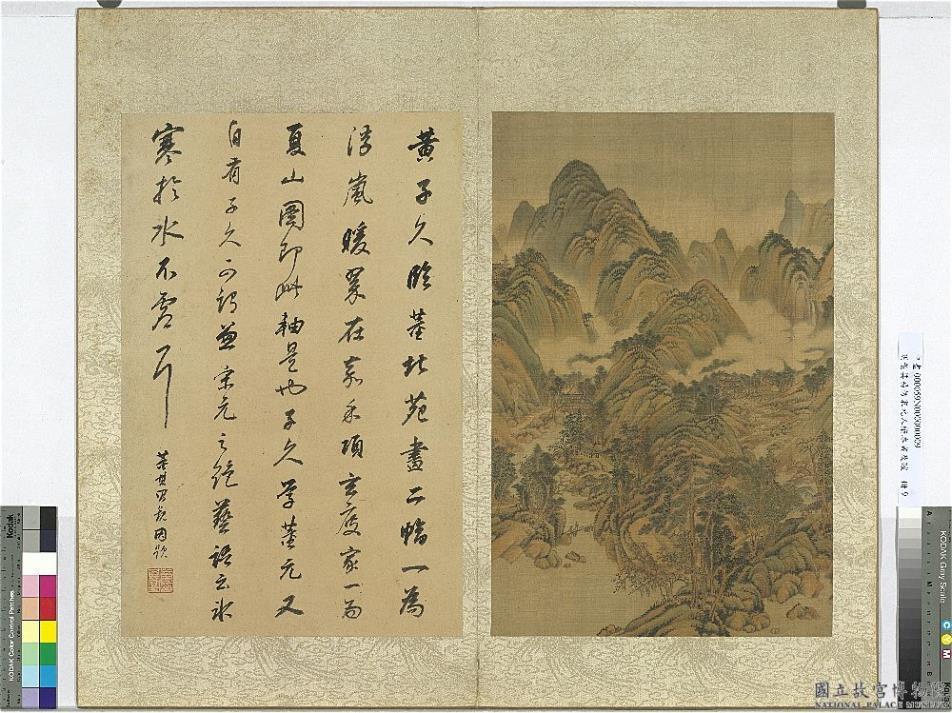 黃子久臨董北苑畫二幅一為
浮嵐暖翠在嘉禾項玄度家一為
夏山圖即此軸是也子久學董元又
自有子久可謂兼宋元之絕藝語云冰
寒於水不虛耳
董其昌
國立故宮博物院
NATIONAL PALACE MUSEUM
KODAK Color Control Patches
Kodak
KODAK Gray Scale
C
Y
M